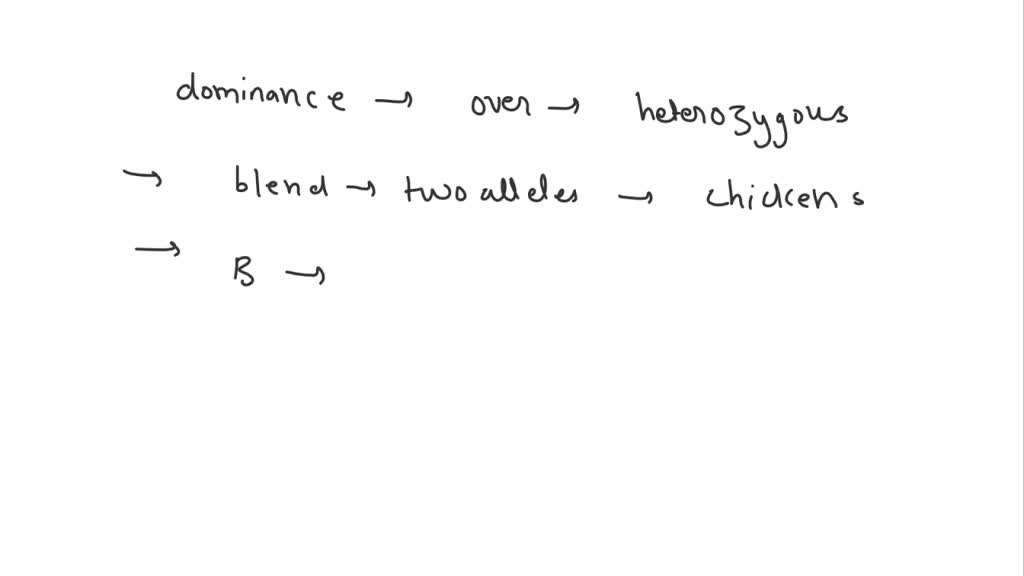 dominance → over → heterozygous
→ blend → two alleles → chickens
→ B →